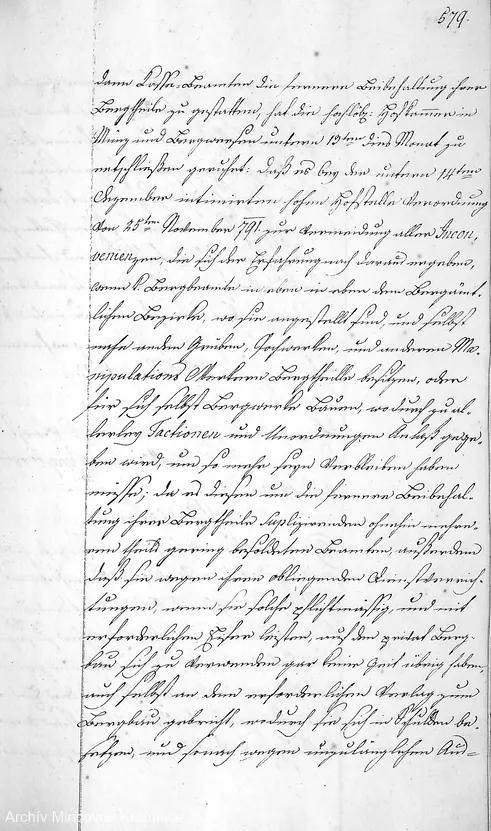 579.
dann Cassa-Beamten die fernere Beibehaltung ihrer
Bergtheile zu gestatten, hat die hochlöbl: Hofkammer in
Münz und Bergweesen unterm 19ten dies Monat zu
entschließen geruhet: daß es bey der unterm 14ten
Dezember intimirten hohen Hofstelle Verordnung
von 25ten November 791 zur Vermeidung aller Incon,
venienzen, die sich der Erfahrung nach daraus ergeben,
wenn k. Bergbeamte in eben in eben dem Bergämt-
lichen Bezirke, wo sie angestellt sind, und selbst
nahe an den Gruben, Pochwerken, und anderen Ma-
nipulations Werkern Bergtheile besitzen, oder
für sich selbst Bergwerke Bauen, wodurch zu al-
lerley Factionen und Unordnungen Anlaß gege-
ben wird, um so mehr sein Verbleiben haben
müsse; da es diesen um die fernere Beibehal-
tung ihrer Bergtheile Suplizirenden ohnehin mehre-
ren theils gering besoldeten Beamten, außerdem
daß sie wegen ihren obliegenden Dienstverrich-
tungen, wenn sie solche pflichtmässig, und mit
erforderlichen Eifer leisten, auf den privat Berg-
bau sich zu verwenden gar keine Zeit übrig haben,
auch selbst an dem erforderlichen Verlag zum
Bergbau gebricht, wodurch sie sich in Schulden be-
setzen, und sonach wegen unzulänglichen Aus-
Archív Mincovne Kremnica